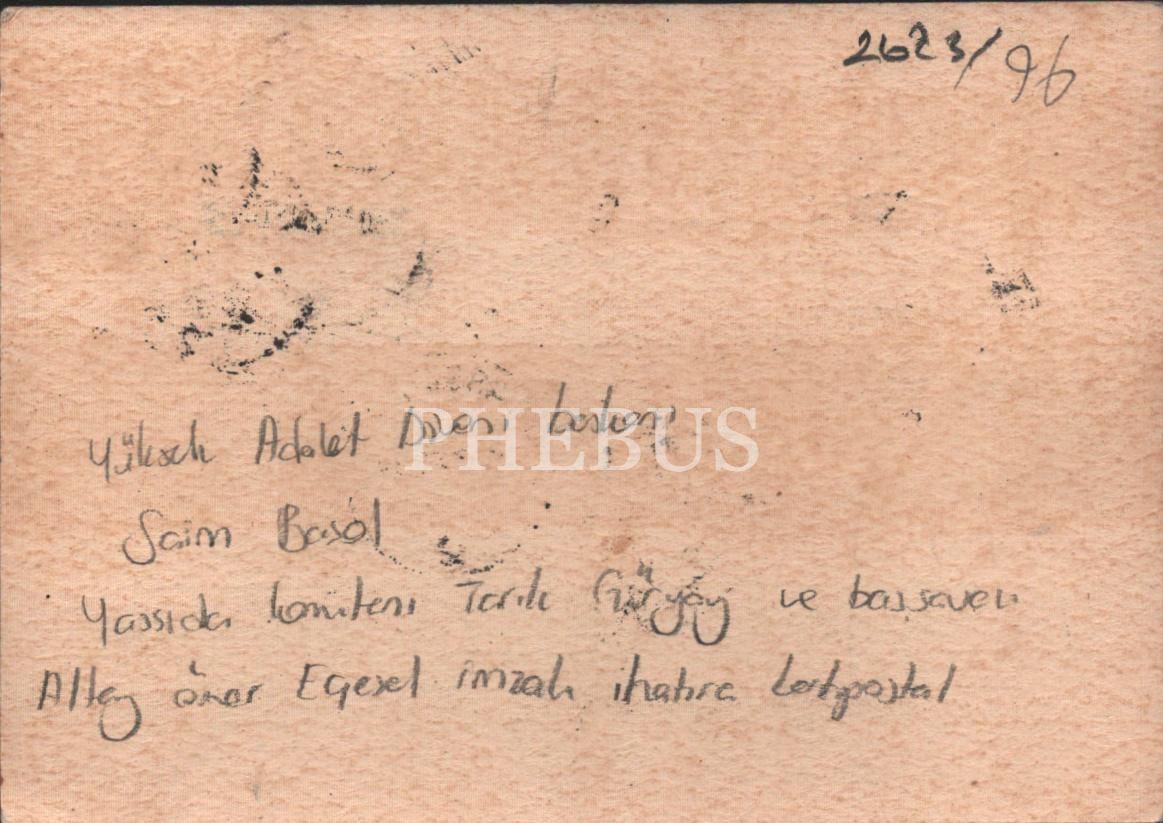 2623/96
Yüksek Adalet Divanı başkanı
PHEBUS
Saim Basol
Yassıda komutanı Tarık Güryay ve başsavcı
Altay ömer Egesel imzalı ihatıra kartpostal